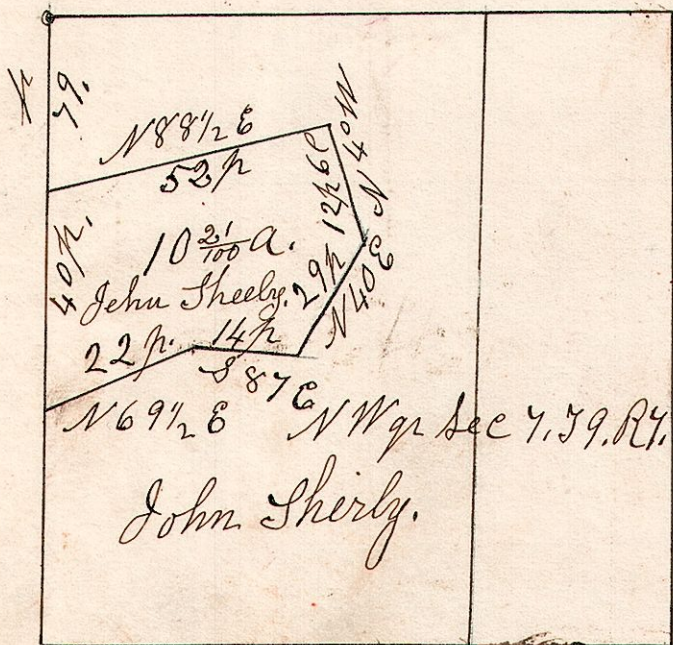 79.
N 88 1/2 E
52 p
N 4° W
12 p 6 l
40 p.
10 21/100 a.
Jehu Sheeby.
29 p
N 40 E
22 p.
14 p
S 87 E
N 69 1/2 E
N W qr Sec 7. T9. R7.
John Sherly.